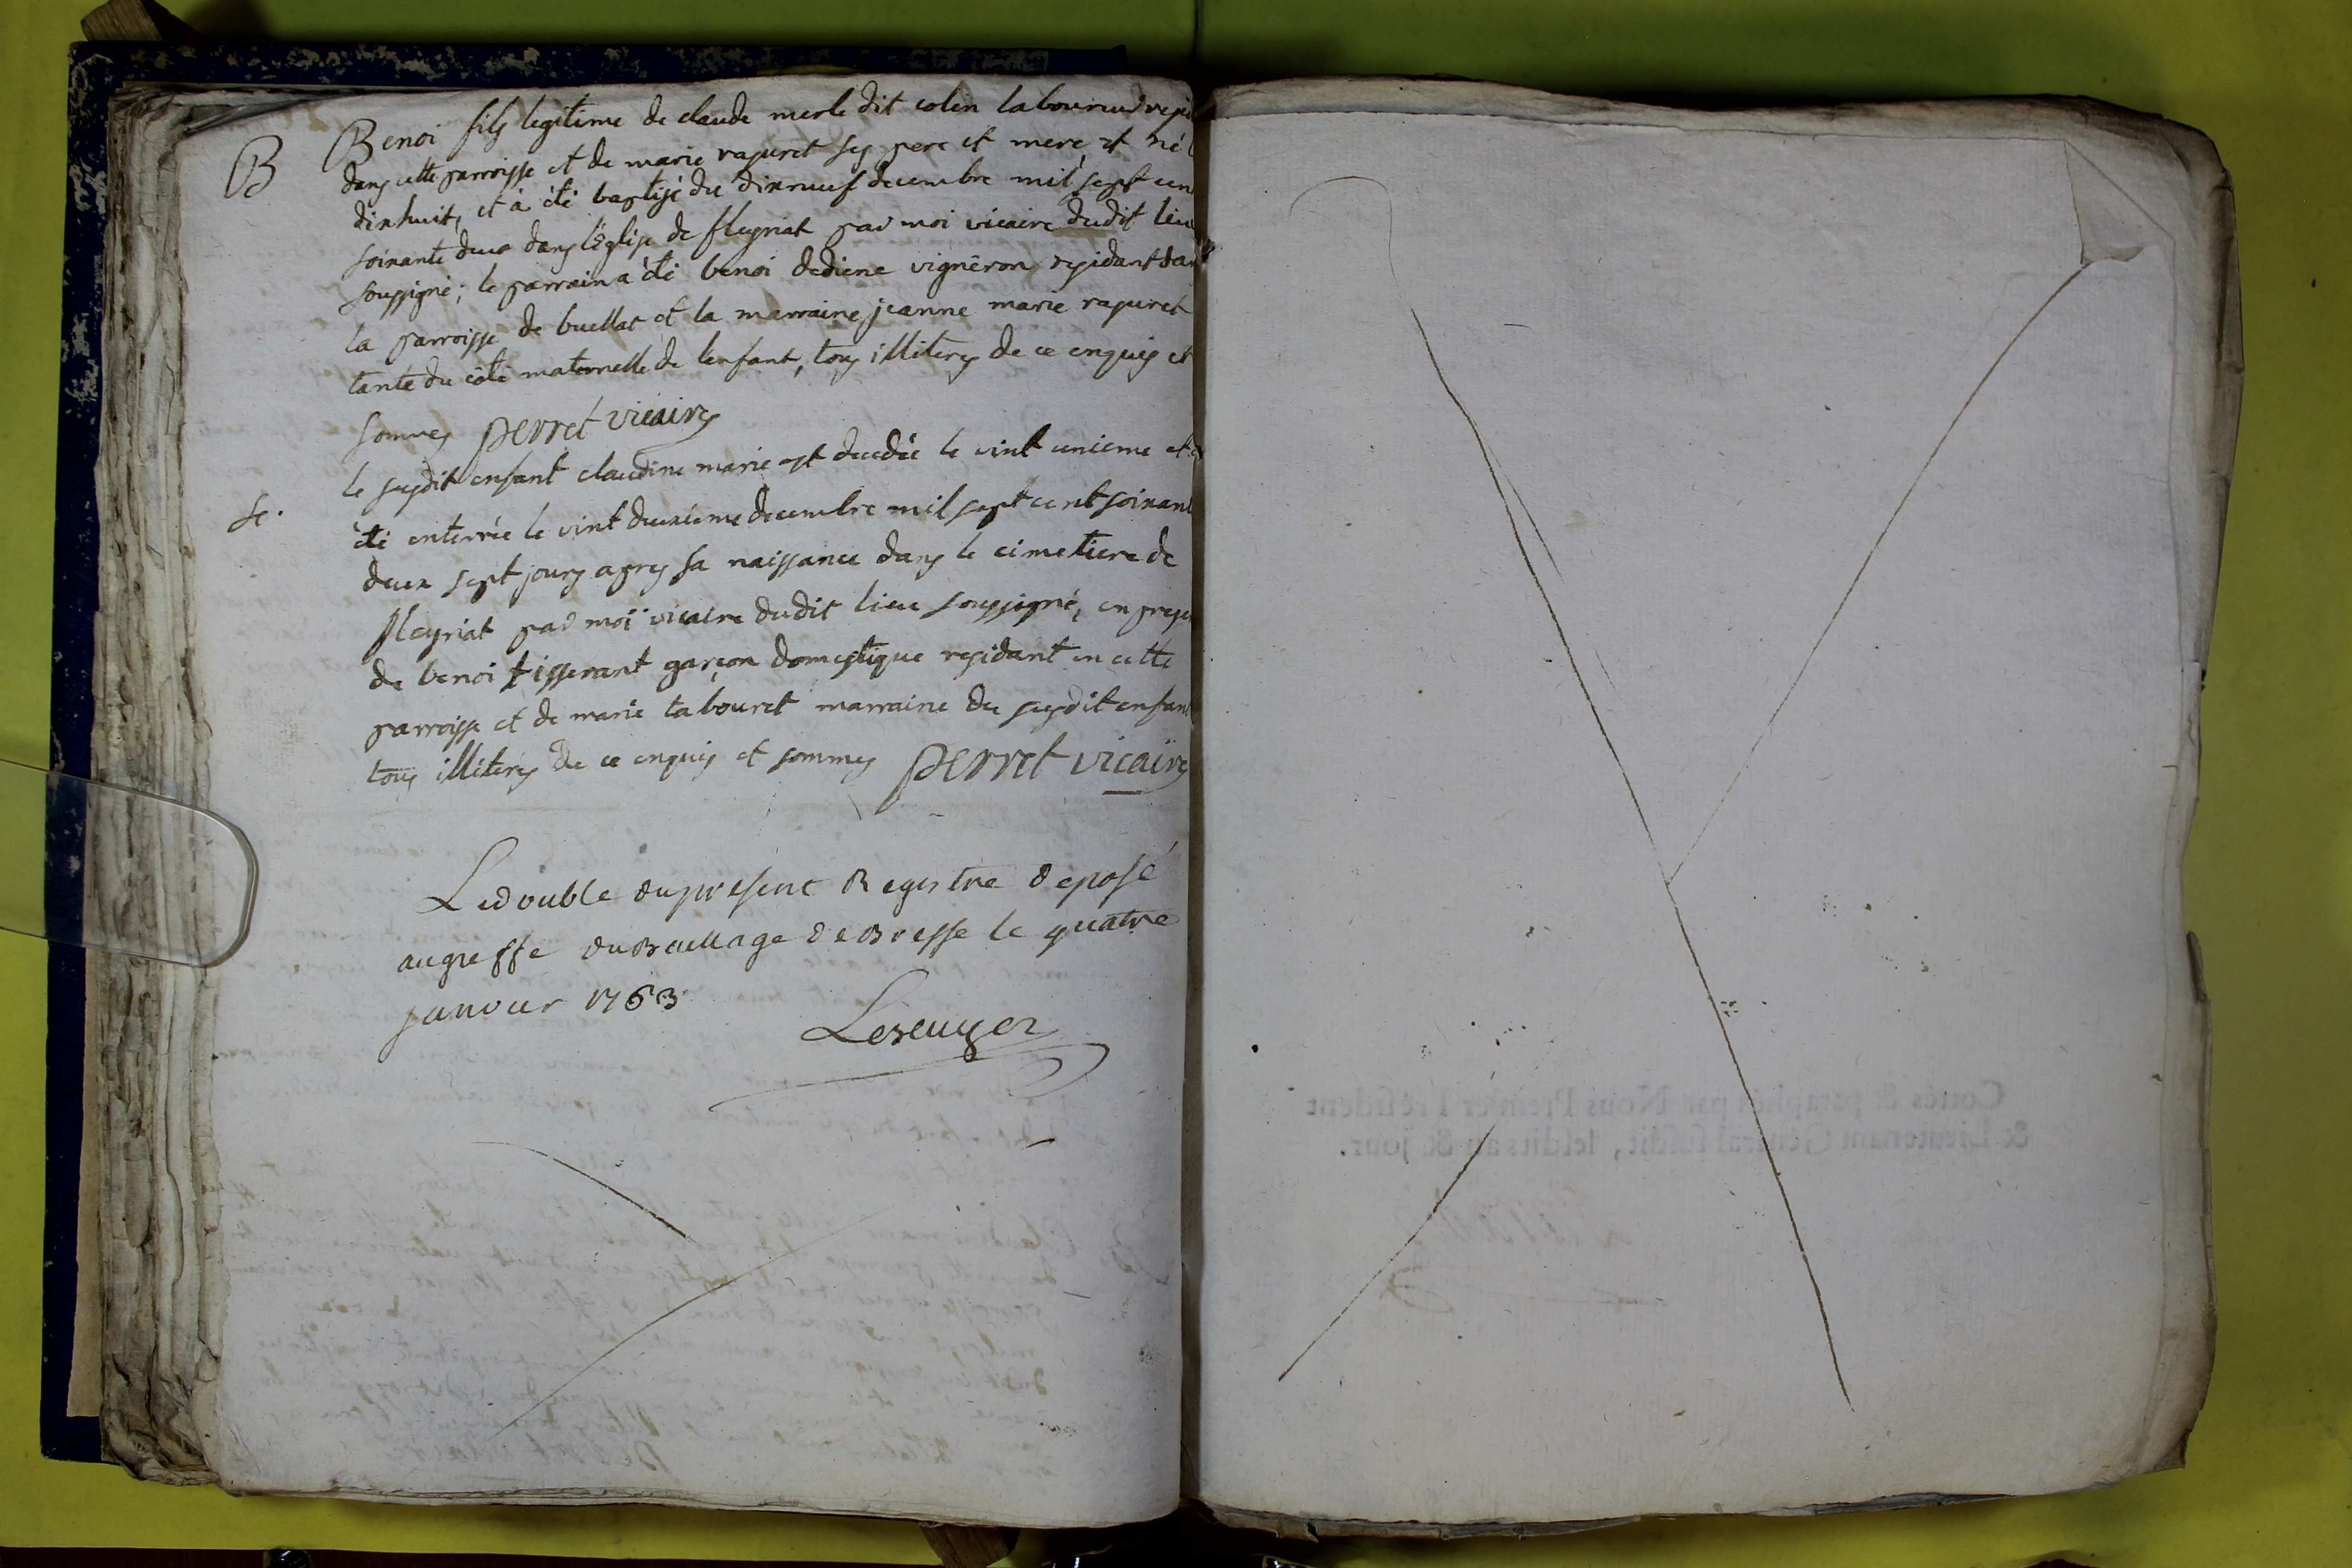 B Benoi fils legitime de claude merle dit colin laboureur resid
dans cette parroisse et de marie rapuret ses pere et mere, est né l
dixhuit, et à été baptisé du dixneuf decembre mil sept cen
soixante deux dans l'Eglise de fleyriat par moi vicaire dudit lieu
soussigné; le parrain a été benoi dediene vigneron residant dan
la parroisse de buellas et la marraine jeanne marie rapuret
tante du côté maternelle de lenfant, tous illiterés de ce enquis et
sommes perret vicaire
le susdit enfant claudine marie est decedée le vint unieme et a
Se. été enterrée le vint deuxieme decembre mil sept cent soixant
deux sept jours apres sa naissance dans le cimetiere de
fleyriat par moi vicaire dudit lieu soussigné, en prese
de benoi tisserant garçon domestique residant en cette
parroisse et de marie tabouret marraine du susdit enfant
tous illiterés de ce enquis et sommes perret vicaire
Ledouble dupresent Registre deposé
augreffe duBailliage deBresse le quatre
janvier 1763
Cottés & paraphés par Nous Premier Président
& Lieutenant Général susdit, lesdits an & jour.